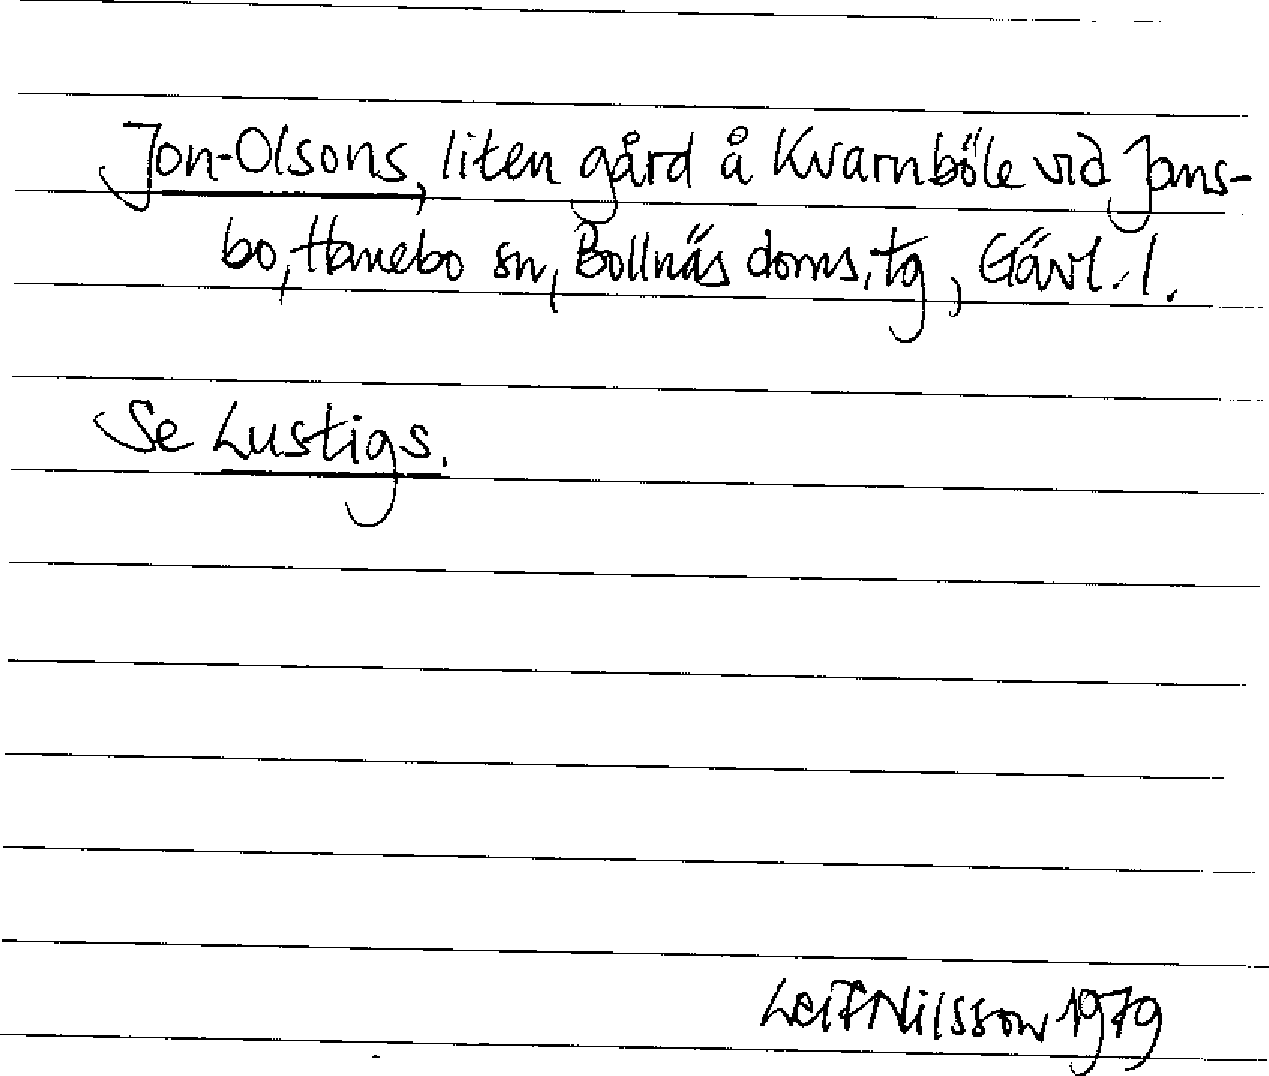 Jon-Olsons, liten gård å Kvarnböle vid Jons-
bo, Hanebo sn, Bollnäs doms. tg, Gävl. l.
Se Lustigs.
Leif Nilsson 1979